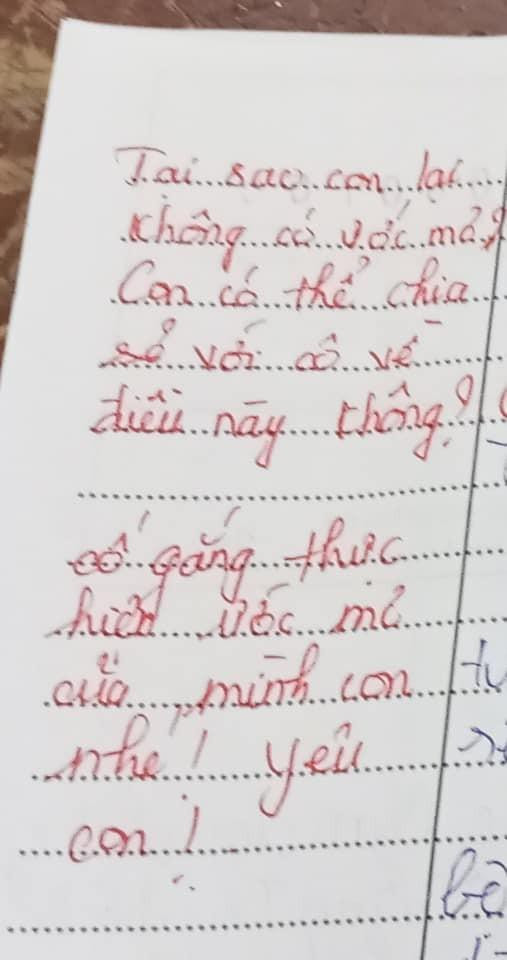 Tại sao con lại
không có ước mơ?
Con có thể chia
sẻ với cô về
điều này không?
cố gắng thực
hiện ước mơ
của mình con
nhé! yêu
con!